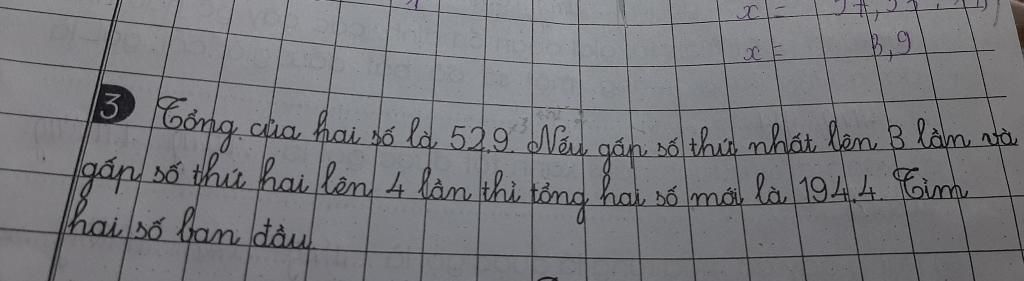 x =
x = 3,9
3 Tổng của hai số là 52,9. Nếu gấp số thứ nhất lên 3 lần và
gấp số thứ hai lên 4 lần thì tổng hai số mới là 194,4. Tìm
hai số ban đầu.